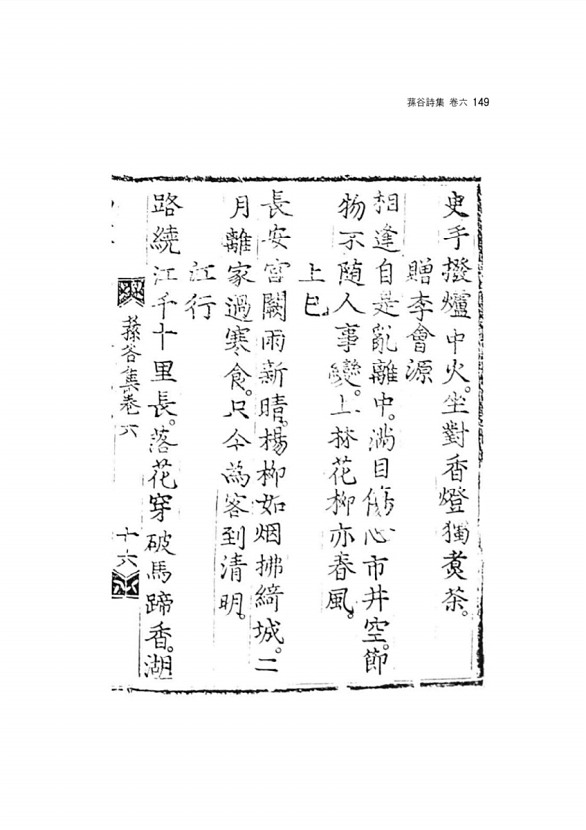 蓀谷詩集 卷六 149
史手撥爐中火。坐對香燈獨煑茶。
贈李會源
相逢自是亂離中。滿目傷心市井空。節
物不随人事變。上林花柳亦春風。
上巳
長安宮闕雨新晴。楊柳如烟拂綺城。二
月離家過寒食。只今爲客到清明。
江行
路繞江千十里長。落花穿破馬蹄香。湖
蓀谷集卷六
十六